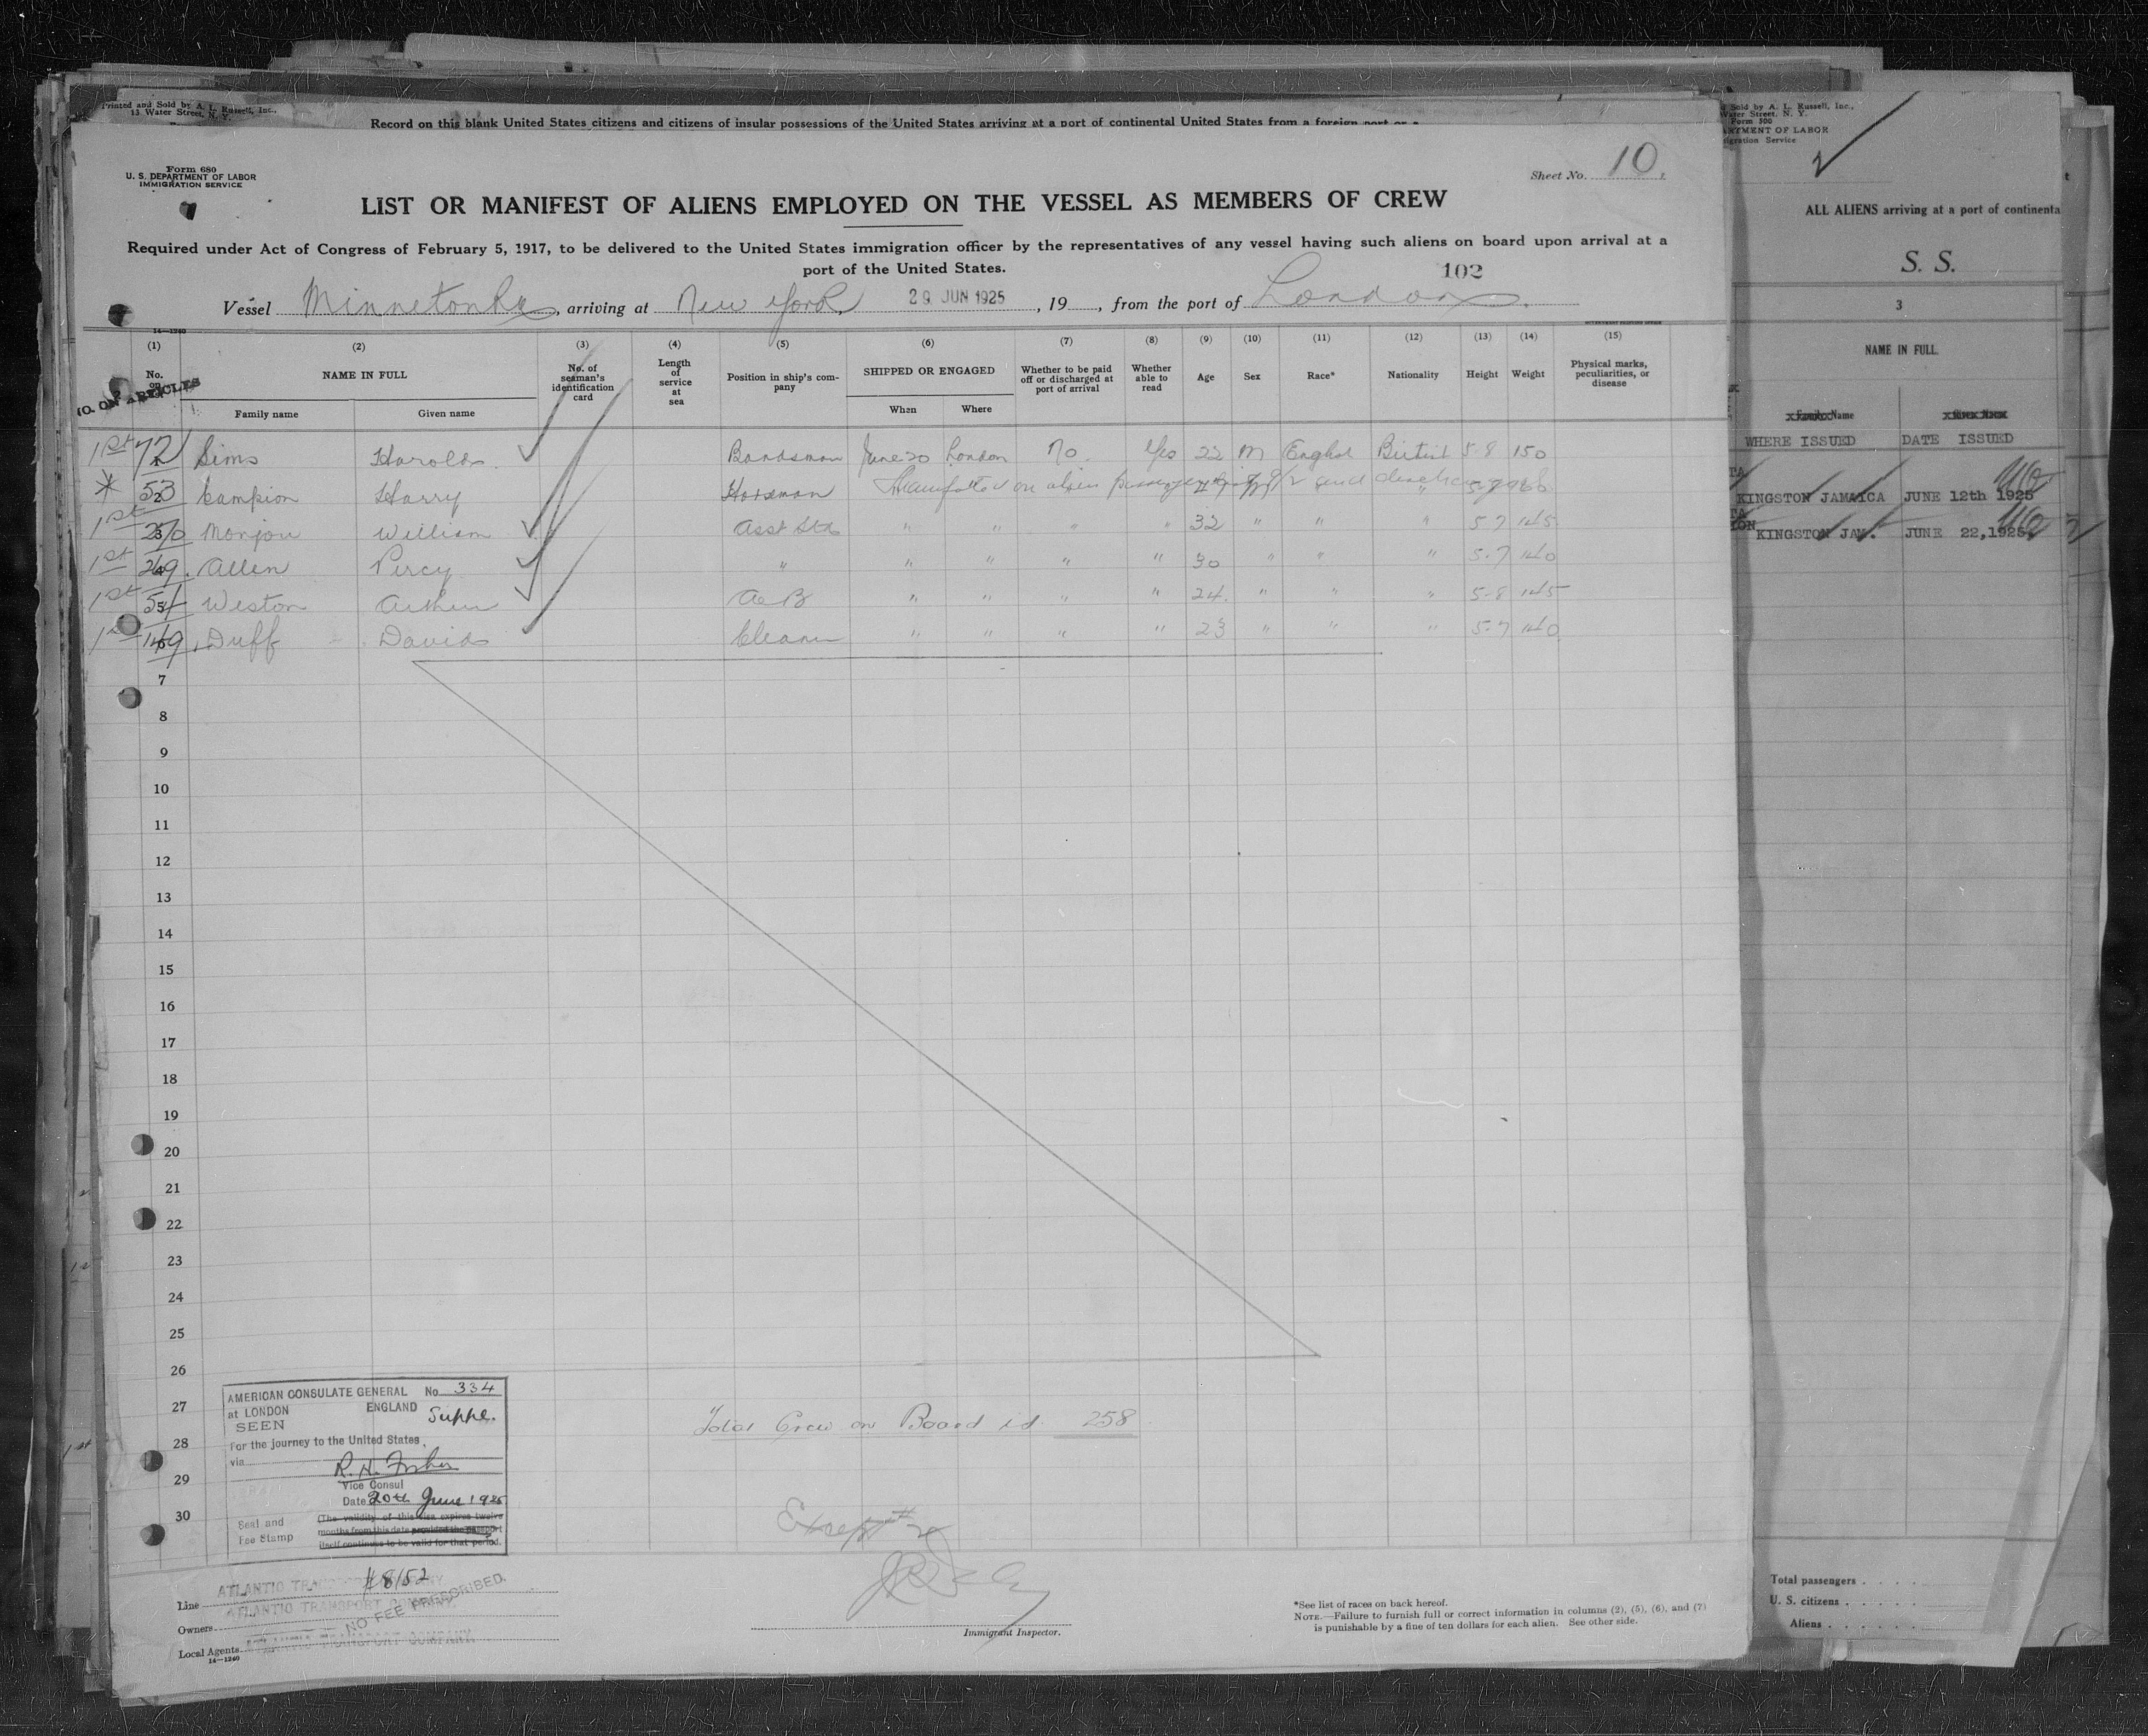 Printed and Sold by A. L. Russell, Inc.,
13 Water Street, N. Y.
Record on this blank United States citizens and citizens of insular possessions of the United States arriving at a port of continental United States from a foreign port or a
Form 680
U. S. DEPARTMENT OF LABOR
IMMIGRATION SERVICE
Sheet No. 10.
LIST OR MANIFEST OF ALIENS EMPLOYED ON THE VESSEL AS MEMBERS OF CREW
Required under Act of Congress of February 5, 1917, to be delivered to the United States immigration officer by the representatives of any vessel having such aliens on board upon arrival at a
port of the United States.
102
Vessel Minnetonka, arriving at New York, 29 JUN 1925, 19, from the port of London.
14—1240
(1) (2) (3) (4) (5) (6) (7) (8) (9) (10) (11) (12) (13) (14) (15)
No. on
NO. ON ARTICLES
NAME IN FULL
Family name Given name
No. of seaman's identification card
Length of service at sea
Position in ship's company
SHIPPED OR ENGAGED
When Where
Whether to be paid off or discharged at port of arrival
Whether able to read
Age Sex Race* Nationality Height Weight
Physical marks, peculiarities, or disease
1st 72 Sims Harold Bandsman June 20 London No. Yes 22 M English British 5-8 150
53 Campion Harry Horseman Manifested on alien and 5-7
1st 270 Monjou William Asst Std " " " " 32 " " " 5-7 145
1st 269. Allen Percy " " " " " 30 " " " 5-7 140
1st 54 Weston Arthur A B " " " " 24. " " " 5-8 145
169 Duff David Cleaner " " " " 23 " " " 5-7 140
7
8
9
10
11
12
13
14
15
16
17
18
19
20
21
22
23
24
25
26
27
28
29
30
Total Crew on Board is. 258
Except # 2
AMERICAN CONSULATE GENERAL No. 334
at LONDON ENGLAND Suppl.
SEEN
For the journey to the United States,
via
R. H.
Vice Consul
Date 20th June 1925
Seal and
Fee Stamp
(The validity of this visa expires twelve
months from this date provided the passport
itself continues to be valid for that period.
#8152
Line ATLANTIC TRANSPORT COMPANY
ATLANTIC TRANSPORT COMPANY
NO FEE PRESCRIBED.
Owners
Local Agents ATLANTIC TRANSPORT COMPANY
14—1240
Immigrant Inspector.
*See list of races on back hereof.
NOTE.—Failure to furnish full or correct information in columns (2), (5), (6), and (7)
is punishable by a fine of ten dollars for each alien. See other side.
Sold by A. L. Russell, Inc.,
Water Street, N. Y.
Form 500
ARTMENT OF LABOR
migration Service
ALL ALIENS arriving at a port of continenta
S. S.
3
NAME IN FULL
Family Name Given Name
WHERE ISSUED DATE ISSUED
KINGSTON JAMAICA JUNE 12th 1925
KINGSTON JAM. JUNE 22,1925.
Total passengers
U. S. citizens
Aliens